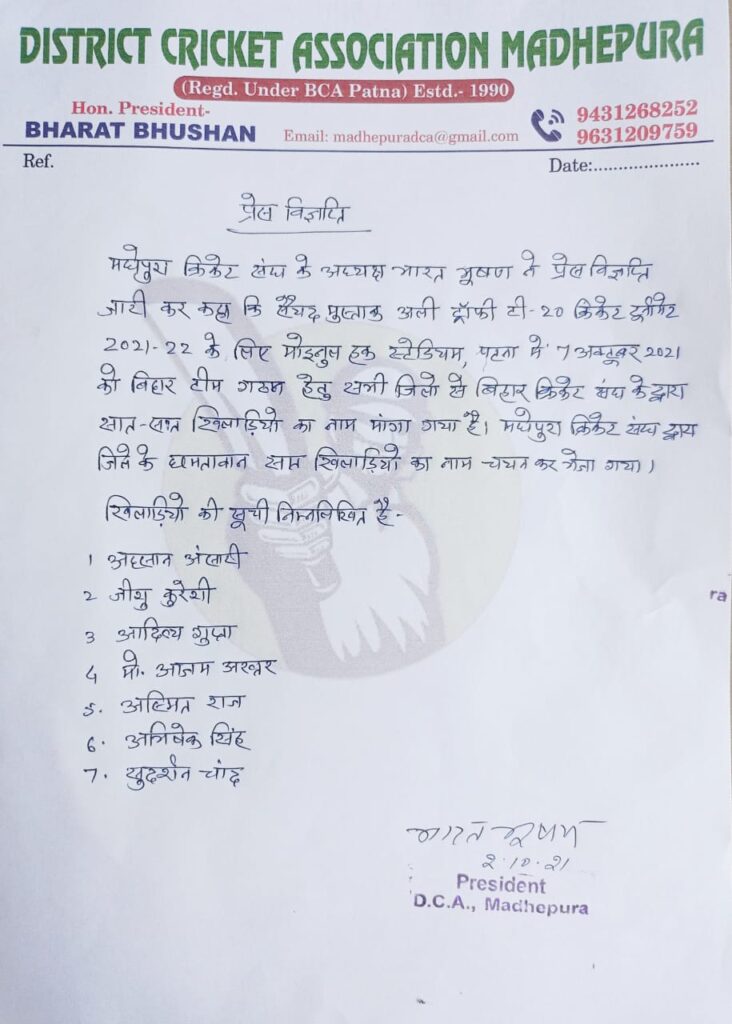 DISTRICT CRICKET ASSOCIATION MADHEPURA
(Regd. Under BCA Patna) Estd.- 1990
Hon. President-
BHARAT BHUSHAN
Email: madhepuradca@gmail.com
9431268252
9631209759
Ref.
Date:.....................
प्रेस विज्ञप्ति
मधेपुरा क्रिकेट संघ के अध्यक्ष भारत भूषण ने प्रेस विज्ञप्ति
जारी कर कहा कि सैयद मुस्ताक अली ट्रॉफी टी-20 क्रिकेट टूर्नामेंट
2021-22 के लिए मोइनुल हक स्टेडियम, पटना में 7 अक्टूबर 2021
को बिहार टीम गठन हेतु सभी जिलो से बिहार क्रिकेट संघ के द्वारा
सात-सात खिलाड़ियो का नाम मांगा गया है। मधेपुरा क्रिकेट संघ द्वारा
जिले के छमतावान सात खिलाड़ियो का नाम चयन कर भेजा गया।
खिलाड़ियो की सूची निम्नलिखित है-
1 अहसान अंसारी
2 जीशु कुरेशी
3 आदित्य गुप्ता
4 मो. आजम अख्तर
5. अस्मित राज
6. अभिषेक सिंह
7. सुदर्शन चांद
भारत भूषण
2.10.21
President
D.C.A., Madhepura
ra